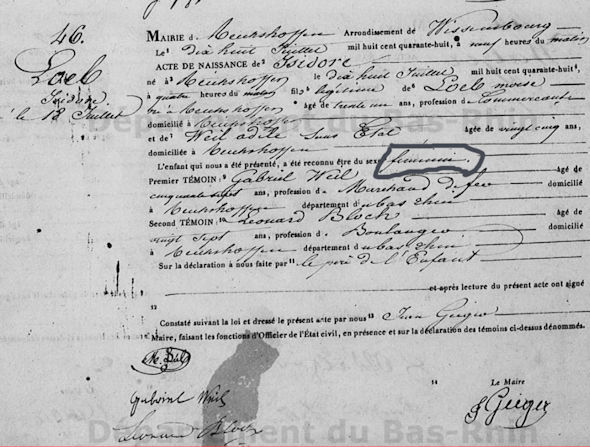 46.
Loeb
Isidore
le 18 Juillet
MAIRIE d. Reichshoffen Arrondissement de Wissembourg
Le 1 dix huit Juillet mil huit cent quarante-huit, à neuf heures du matin
ACTE DE NAISSANCE de 2 Isidore
né à 3 Reichshoffen le dix huit Juillet mil huit cent quarante-huit 4
à quatre heures du matin fils 5 légitime de 6 Loeb moïse
né à Reichshoffen âgé de trente un ans, profession de Commerçant
domicilié à Reichshoffen
et de 7 Weil adèle sans Etat âgée de vingt cinq ans,
domiciliée à Reichshoffen
L'enfant qui nous a été présenté, a été reconnu être du sexe 8 féminin.
PREMIER TÉMOIN: 9 Gabriel Weil âgé de
cinquante sept ans, profession de Marchand de fer domicilié
à Reichshoffen département du bas rhin
SECOND TÉMOIN: 10 Léonard Bloch âgé de
vingt sept ans, profession de Boulanger domicilié
à Reichshoffen département du bas rhin
Sur la déclaration à nous faite par 11 le père de l'Enfant
et après lecture du présent acte ont signé
12
Constaté suivant la loi et dressé le présent acte par nous 13 Jean Geiger
Maire, faisant les fonctions d'Officier de l'État civil, en présence et sur la déclaration des témoins ci-dessus dénommés.
14 Le Maire
Gabriel Weil
Geiger
Léonard Bloch
Département du Bas-Rhin
Département du Bas-Rhin